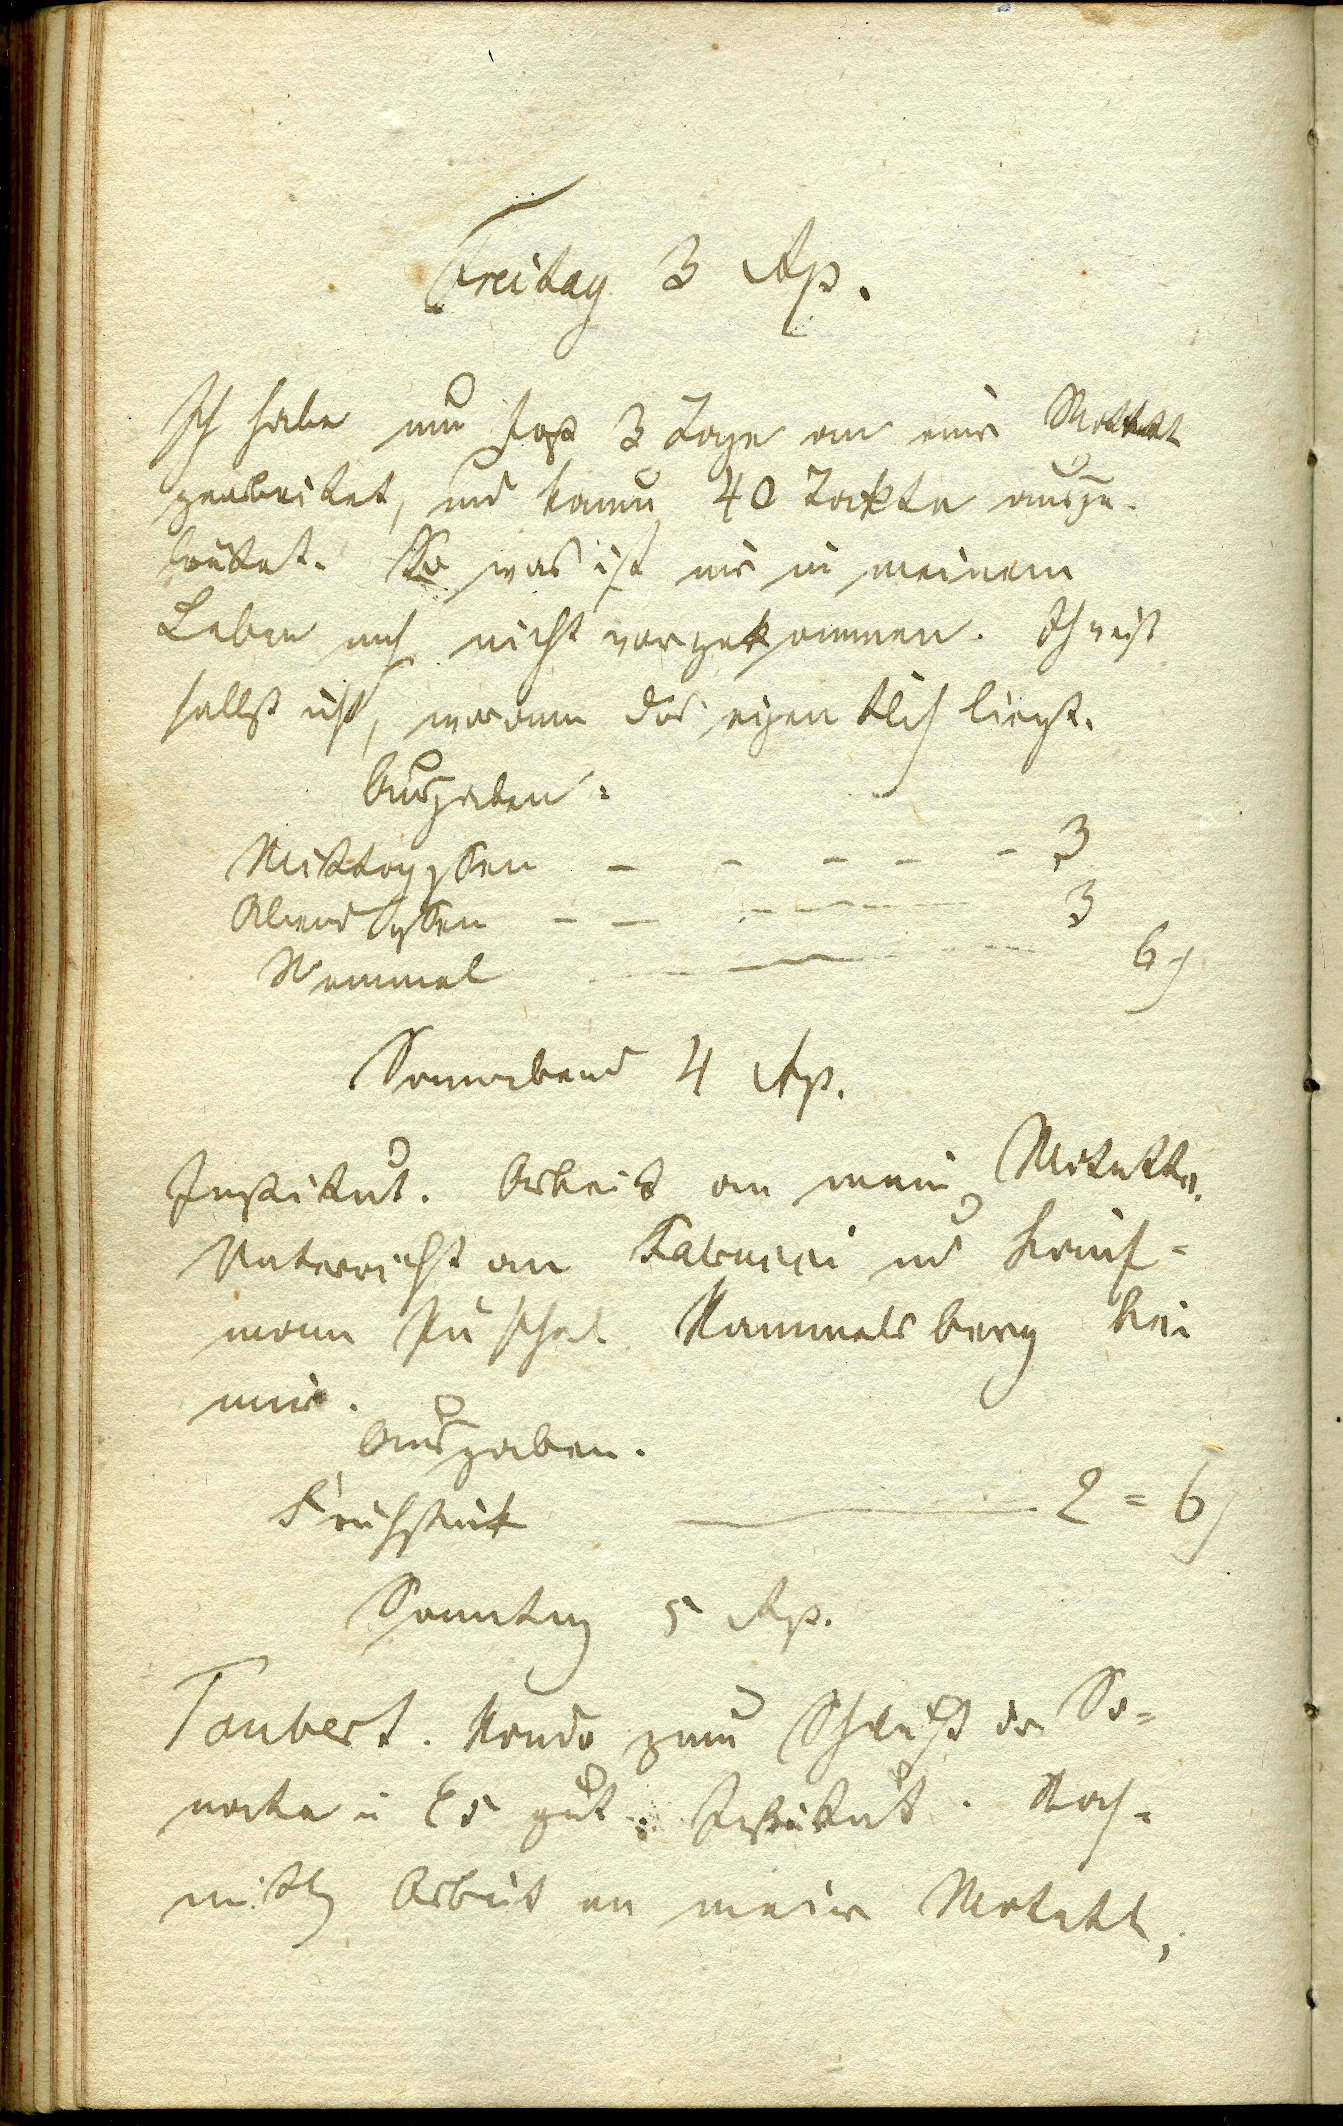 Freitag 3 Ap.
Ich habe nun fast 3 Tage an einer Motette
gearbeitet, und kaum 40 Takte ausge-
brütet. So was ist mir in meinem
Leben noch nicht vorgekommen. Ich weiß
selbst nicht, woran das eigentlich liegt.
Ausgaben:
Mittagessen - - - - - 3
Abendessen - - - 3
Semmel 6
Sonnabend 4 Ap.
Institut. Arbeit an meiner Motette.
Unterricht an und Kauf-
mann Püschel. Rammelsberg bei
mir.
Ausgaben.
Frühstück 2 = 6
Sonntag 5 Ap.
Taubert. Rondo zum Schluß der So-
nate in Es gut. Institut. Nach-
mittag Arbeit an meiner Motette,